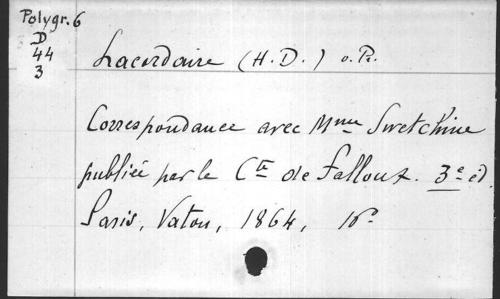 Polygr. 6
D
44
3
Lacordaire (H. D.) o. Pr.
Correspondance avec Mme Swetchine
publiée par le Cte de Falloux. 3e éd.
Paris, Vaton, 1864, 16°